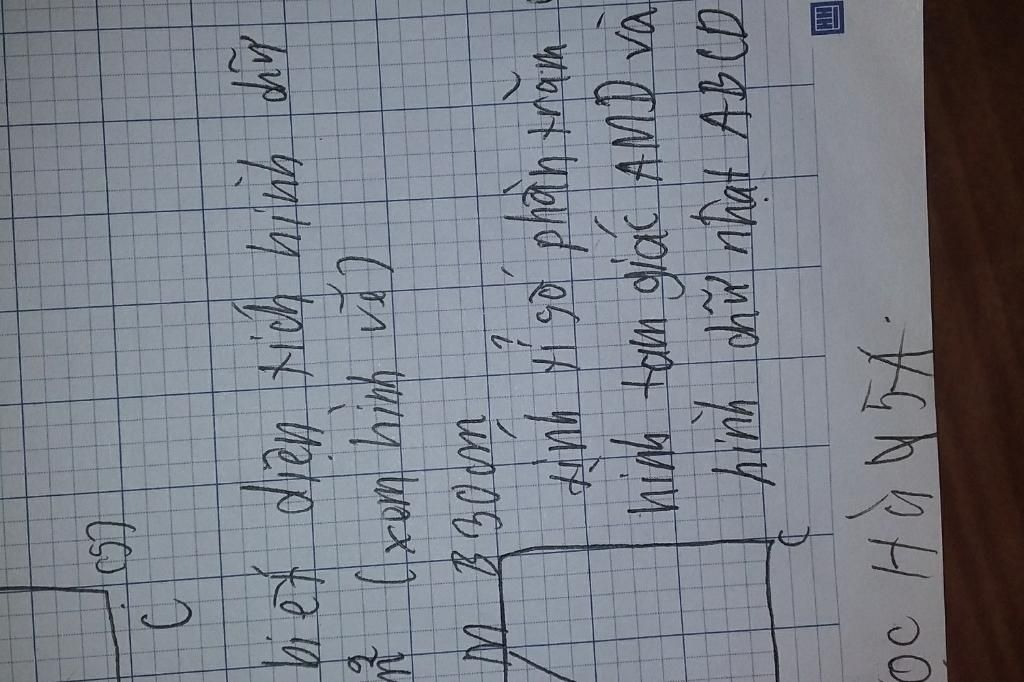 C 5)
biết diện tích hình chữ
(xem hình vẽ)
M B 30cm
tính tỉ số phần trăm
hình tam giác AMD và
hình chữ nhật ABCD
C
Hà 4 5A.